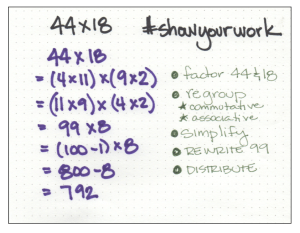 44×18 #showyourwork
44×18
= (4×11)×(9×2)
= (11×9)×(4×2)
= 99 ×8
= (100-1)×8
= 800-8
= 792
• factor 44 & 18
• regroup
* commutative
* associative
• simplify
• REWRITE 99
• DISTRIBUTE